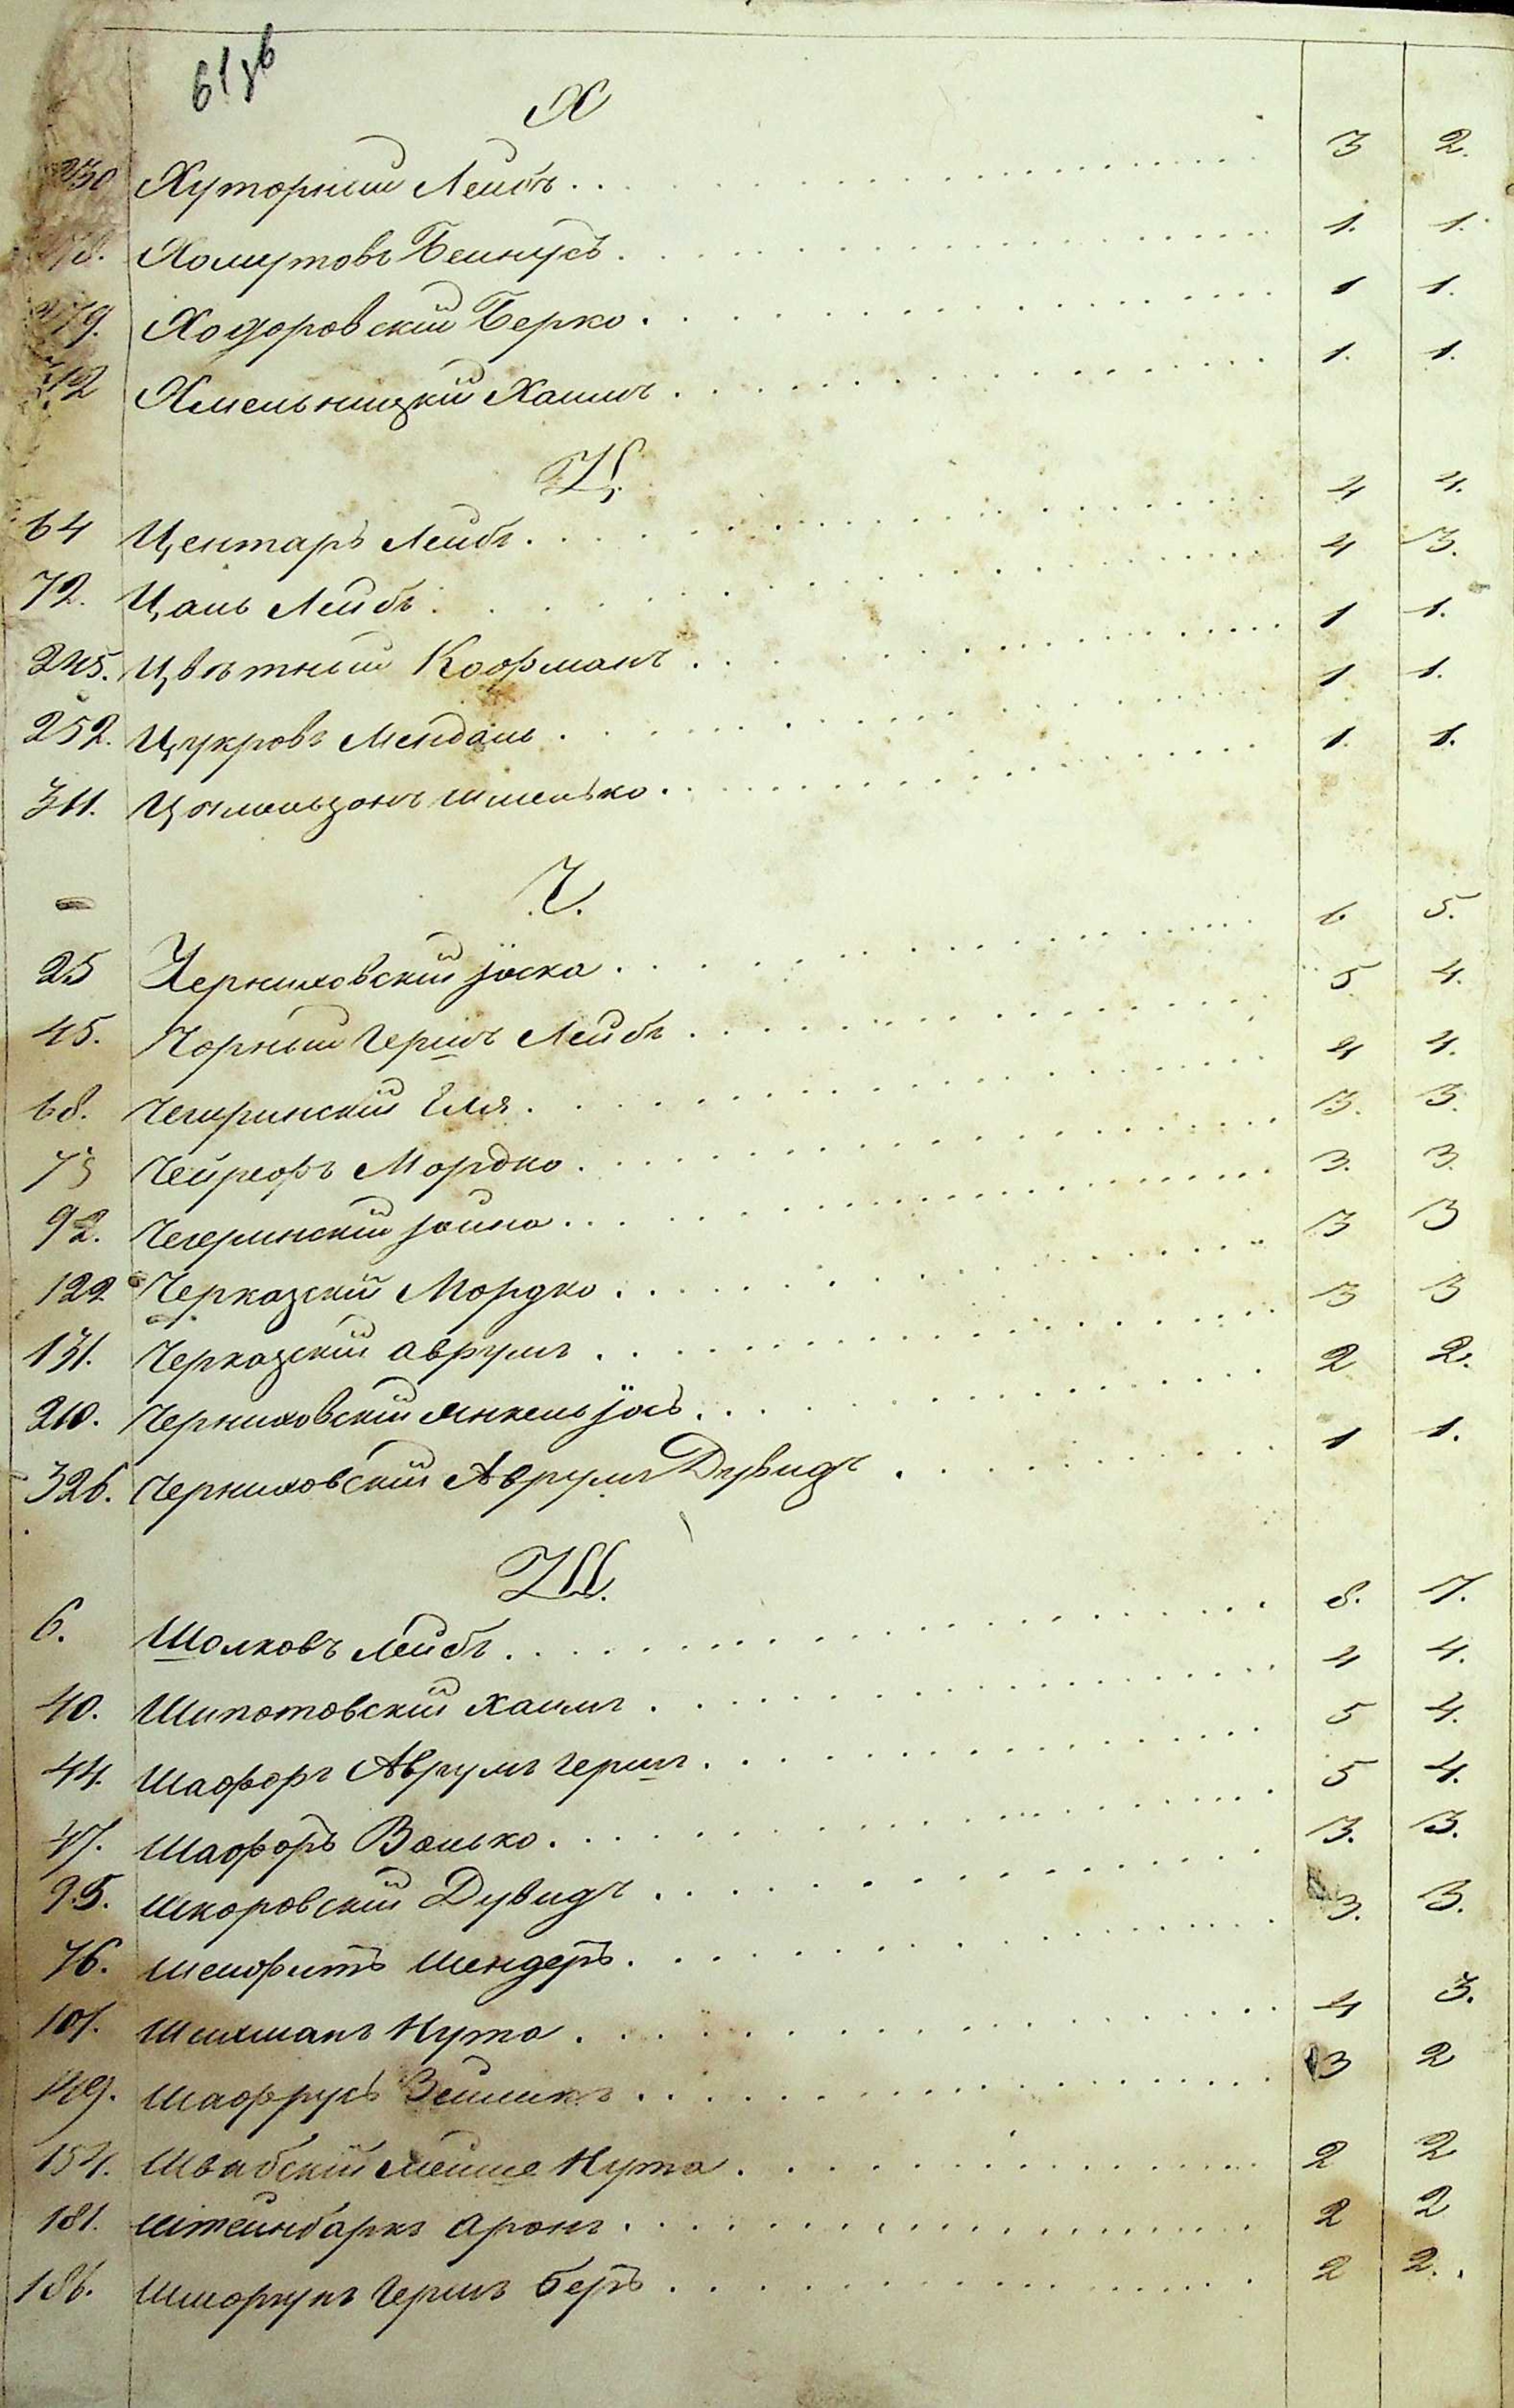 61 зв
Х
230 Хуторный Лейбъ 3 2.
78. Хомутовъ Бейнусъ 1. 1.
279. Ходоровскій Берко 1 1.
312 Хмельницкій Хаимъ 1. 1.
Ц.
64 Центаръ Лейбъ 4 4.
72. Цаль Лейбъ 4 3.
245. Цвѣтный Кофманъ 1 1.
252. Цукровъ Мендель 1 1.
311. Цымельзонъ Шмелько 1. 1.
Ч.
25 Черниховскій Јоска 6 5.
45. Чорный Гершъ Лейбъ 5 4.
68. Чегиринскій Еля 4 4.
73 Чейрефъ Мордко 3. 3.
92. Чегеринскій Јойна 3. 3.
122 Черказскій Мордко 3 3
131. Черказскій Аврумъ 3 3
210. Черниховскій Янкель Јосъ 2 2.
326. Черниховскій Аврумъ Дувидъ 1 1.
Ш.
6. Шолковъ Лейбъ 8. 7.
40. Шипотовскій Хаимъ 4 4.
44. Шафоръ Аврумъ Гершъ 5 4.
47. Шафоръ Волько 5 4.
95. Шкоровскій Дувидъ 3. 3.
76. Шендеръ 3. 3.
101. Шихманъ Нута 4 3.
149. Шафрусъ Зейликъ 3 2
154. Швабскій Мейше Нута 2 2
181. Штейнбаркъ Аронъ 2 2
186. Шморгунъ Гершъ Беръ 2 2.